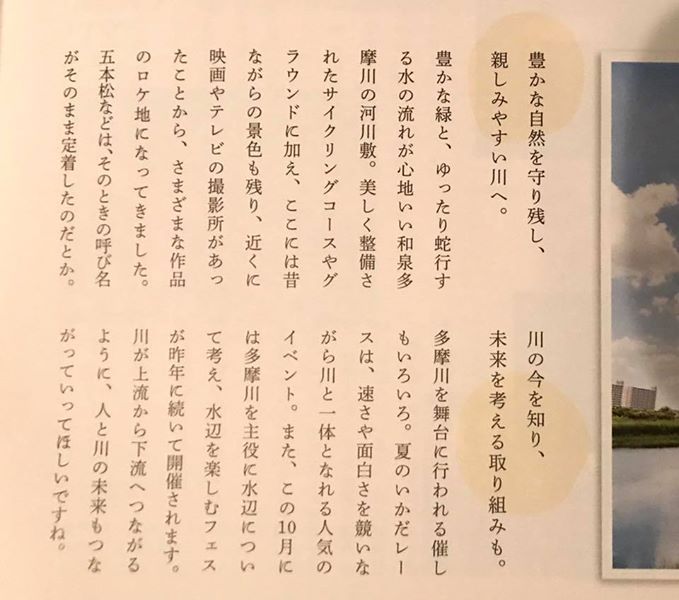 豊かな自然を守り残し、
親しみやすい川へ。
豊かな緑と、ゆったり蛇行す
る水の流れが心地いい和泉多
摩川の河川敷。美しく整備さ
れたサイクリングコースやグ
ラウンドに加え、ここには昔
ながらの景色も残り、近くに
映画やテレビの撮影所があっ
たことから、さまざまな作品
のロケ地になってきました。
五本松などは、そのときの呼び名
がそのまま定着したのだとか。
川の今を知り、
未来を考える取り組みも。
多摩川を舞台に行われる催し
もいろいろ。夏のいかだレー
スは、速さや面白さを競いな
がら川と一体となれる人気の
イベント。また、この10月に
は多摩川を主役に水辺につい
て考え、水辺を楽しむフェス
が昨年に続いて開催されます。
川が上流から下流へつながる
ように、人と川の未来もつな
がっていってほしいですね。